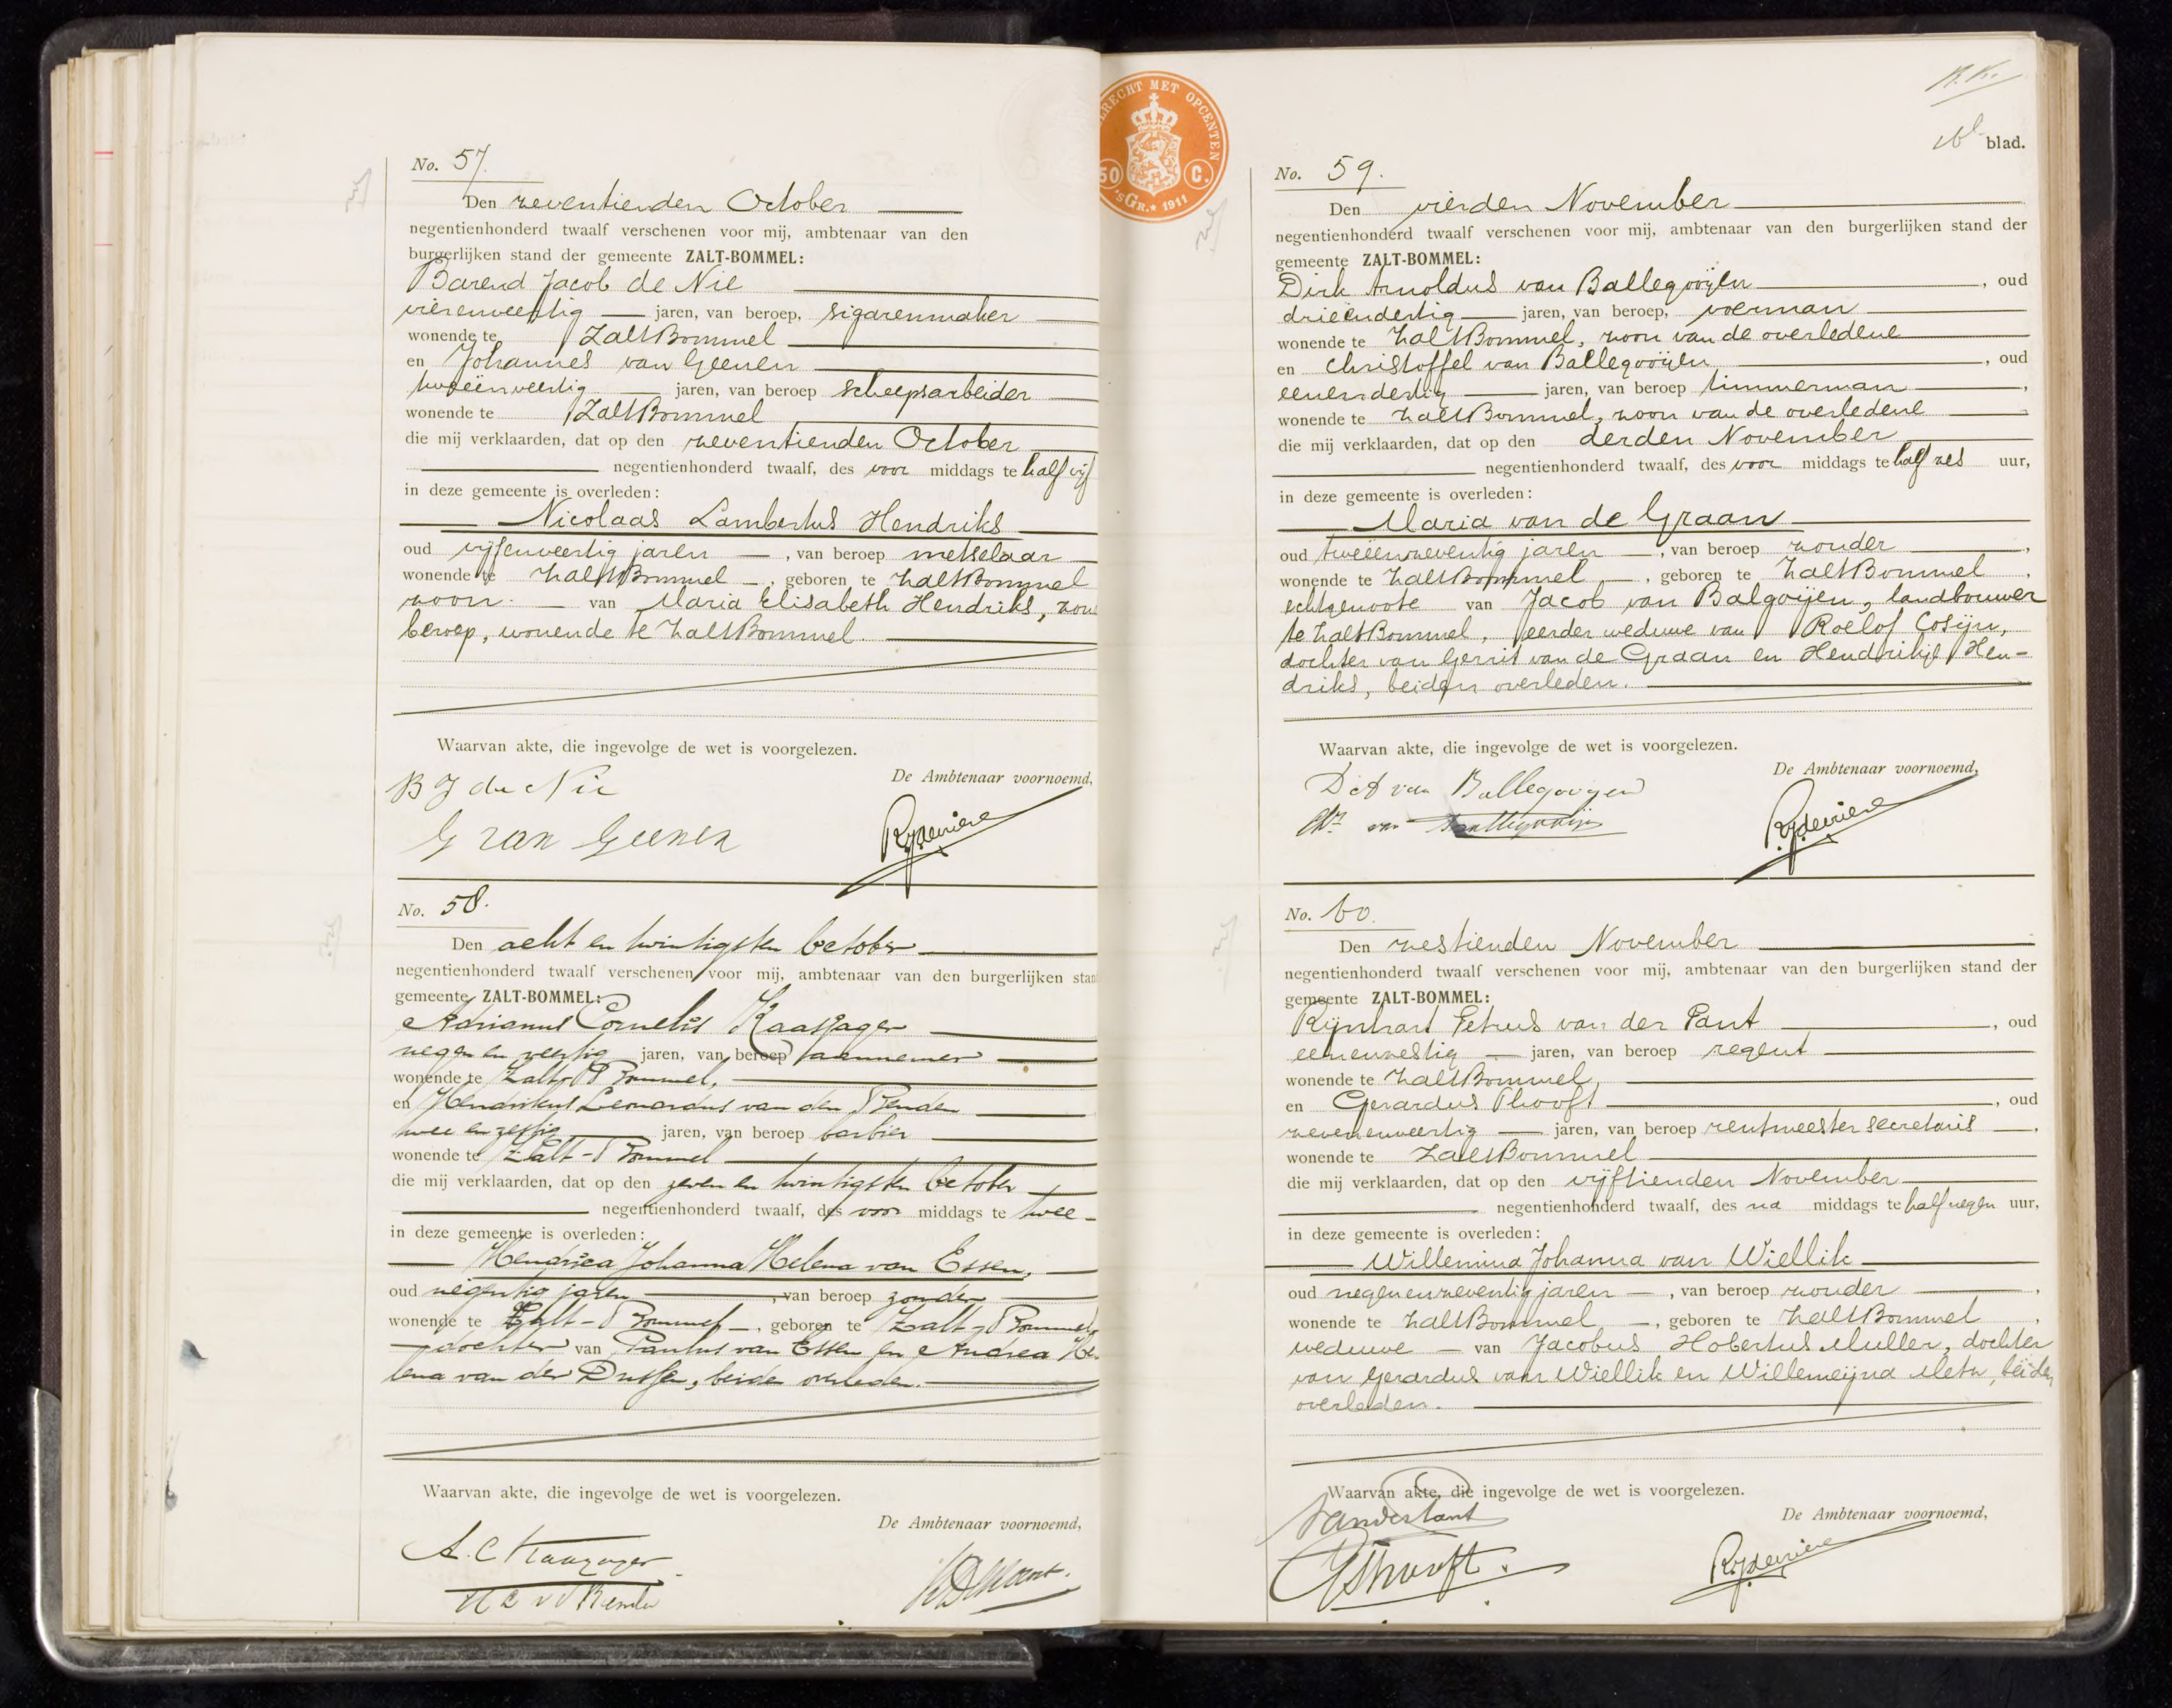 No. 57.
Den zeventienden October
negentienhonderd twaalf verschenen voor mij, ambtenaar van den
burgerlijken stand der gemeente ZALT-BOMMEL:
Barend Jacob de Nie
vierenveertig jaren, van beroep, sigarenmaker
wonende te ZaltBommel
en Johannes van Geenen
tweeënveertig jaren, van beroep scheepsarbeider
wonende te ZaltBommel
die mij verklaarden, dat op den zeventienden October
negentienhonderd twaalf, des voor middags te half vijf
in deze gemeente is overleden:
Nicolaas Lambertus Hendriks
oud vijfenveertig jaren, van beroep metselaar
wonende te ZaltBommel, geboren te ZaltBommel
zoon van Maria Elisabeth Hendriks, zon
beroep, wonende te ZaltBommel.
Waarvan akte, die ingevolge de wet is voorgelezen.
De Ambtenaar voornoemd,
B J de Nie
G van Geenen
No. 58.
Den acht en twintigsten October
negentienhonderd twaalf verschenen voor mij, ambtenaar van den burgerlijken stan
gemeente ZALT-BOMMEL:
Adrianus Cornelis Kaasjager
negen en veertig jaren, van beroep aannemer
wonende te Zalt-Bommel,
en Hendrikus Leonardus van den
twee en zestig jaren, van beroep barbier
wonende te Zalt-Bommel
die mij verklaarden, dat op den zeven en twintigsten October
negentienhonderd twaalf, des voor middags te twee
in deze gemeente is overleden:
Hendrica Johanna Helena van Essen,
oud negentig jaren, van beroep zonder
wonende te Zalt-Bommel, geboren te Zalt-Bommel
dochter van Paulus van Essen en Andrea He
lena van der Dussen, beiden overleden.
Waarvan akte, die ingevolge de wet is voorgelezen.
De Ambtenaar voornoemd,
A. C Kaasjager
50 C.
'sGR. * 1911
blad.
No. 59.
Den vierden November
negentienhonderd twaalf verschenen voor mij, ambtenaar van den burgerlijken stand der
gemeente ZALT-BOMMEL:
Dirk Arnoldus van Ballegooijen, oud
drieëndertig jaren, van beroep, voerman
wonende te ZaltBommel, zoon van de overledene
en Christoffel van Ballegooijen, oud
eenendertig jaren, van beroep timmerman,
wonende te ZaltBommel, zoon van de overledene
die mij verklaarden, dat op den derden November
negentienhonderd twaalf, des voor middags te half zes uur,
in deze gemeente is overleden:
Maria van de Graan
oud tweeënzeventig jaren, van beroep zonder,
wonende te ZaltBommel, geboren te ZaltBommel,
echtgenoote van Jacob van Balgoijen, landbouwer
te ZaltBommel, eerder weduwe van Roelof Cosijn,
dochter van Gerrit van de Graan en Hendrikje Hen-
driks, beiden overleden.
Waarvan akte, die ingevolge de wet is voorgelezen.
De Ambtenaar voornoemd,
D A van Ballegooijen
No. 60.
Den zestienden November
negentienhonderd twaalf verschenen voor mij, ambtenaar van den burgerlijken stand der
gemeente ZALT-BOMMEL:
Rijnhart Petrus van der Pant, oud
eenenzestig jaren, van beroep regent
wonende te ZaltBommel,
en Gerardus Thooft, oud
zevenenveertig jaren, van beroep rentmeester secretaris
wonende te ZaltBommel
die mij verklaarden, dat op den vijftienden November
negentienhonderd twaalf, des na middags te half negen uur,
in deze gemeente is overleden:
Willemina Johanna van Wiellik
oud negenenzeventig jaren, van beroep zonder,
wonende te ZaltBommel, geboren te ZaltBommel,
weduwe van Jacobus Hobertus Muller, dochter
van Gerardus van Wiellik en Willemeijna Metz, beiden
overleden.
Waarvan akte, die ingevolge de wet is voorgelezen.
De Ambtenaar voornoemd,
van der Pant
G Thooft.